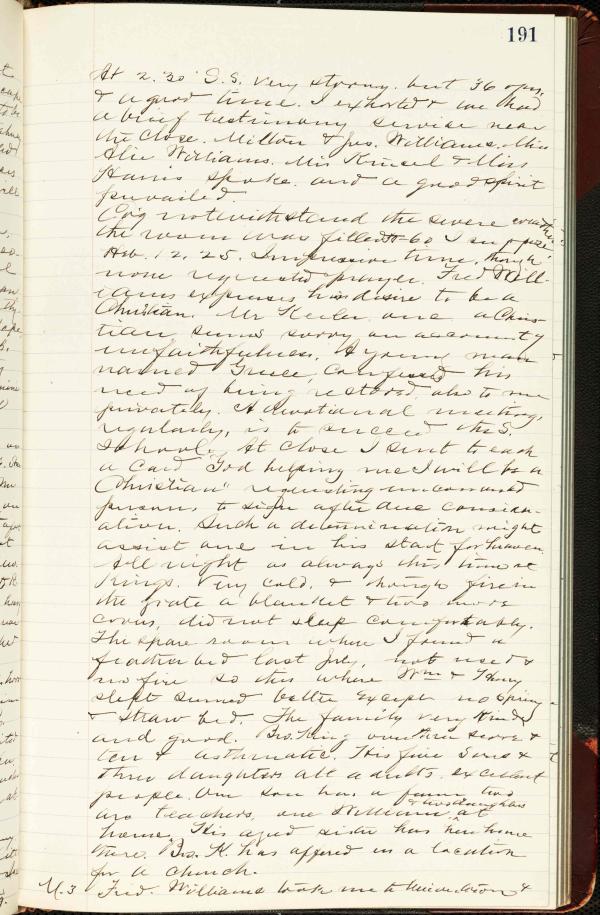 191
At 2.30 S.S. very strong. but 36 opn.
& a good time. I exhorted & we had
a brief testimony service near
the close. Milton & Jos. Williams. Miss
Alie Williams. Mis & Miss
Harris spoke. and a good spirit
prevailed.
Co'g notwithstand the severe weather
the room was filled to 60 I
Heb. 12, 25. Impressive time, though
none requested prayer. Fred Will-
iams expresses his desire to be a
Christian. Mr Keeler once a Chris-
tian seems sorry on account of
unfaithfulness. A young man
named confessed his
need of being restored, also to me
privately. A devotional meeting,
regularly, is to succeed the S.
School. At close I sent to each
a card "God helping me I will be a
Christian" requesting unconverted
persons to sign after due consider-
ation. Such a determination might
assist one in his start for heaven.
All night as always this time at
Kings. Very cold, & though fire in
the grate a blanket & two more
covers, did not sleep comfortably.
The spare room where I found a
feather bed last July, not used &
no fire so this where Wm & Harry
slept seemed better except no spring
& straw bed. The family very kind
and good. Bro. King over three score &
ten & asthmatic. His five sons &
three daughters all adults. excellent
people. One son has a farm two
& two daughters
are teachers, one William at
home. His aged sister has her home
there. Bro. K. has offered us a location
for a church.
M. 3 Fred. Williams took me to &